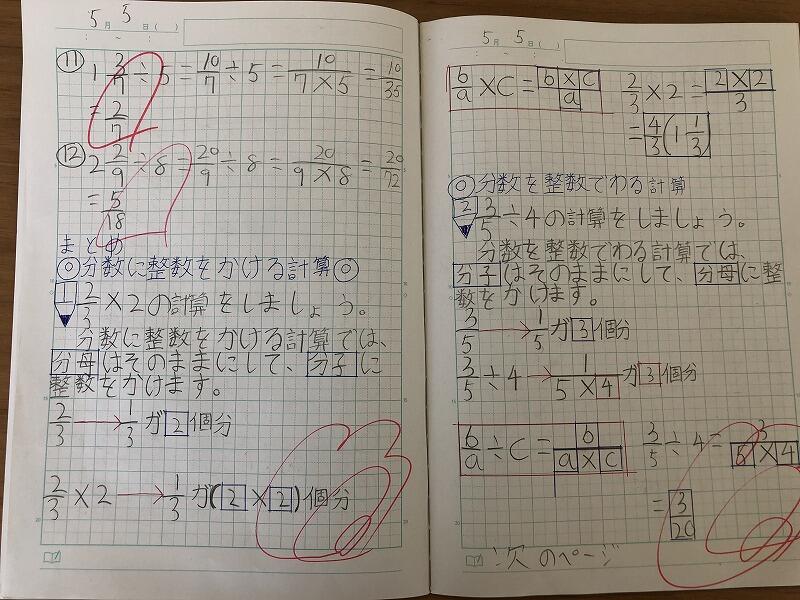 5月3日( )
⑪ 1 3/7÷5=10/7÷5=10/7×5=10/35
=2/7
⑫ 2 2/9÷8=20/9÷8=20/9×8=20/72
=5/18
まとめ
◎分数に整数をかける計算◎
1 2/3×2の計算をしましょう。
分数に整数をかける計算では、
分母はそのままにして、分子に
整数をかけます。
2/3→1/3が2個分
2/3×2→1/3が(2×2)個分
5月5日( )
b/a×C=b×c/a 2/3×2=2×2/3
=4/3(1 1/3)
◎分数を整数でわる計算
2 3/5÷4の計算をしましょう。
分数を整数でわる計算では、
分子はそのままにして、分母に整
数をかけます。
3/5→1/5が3個分
3/5÷4→1/5×4が3個分
b/a÷C=b/a×c 3/5÷4=3/5×4
=3/20
次のページ